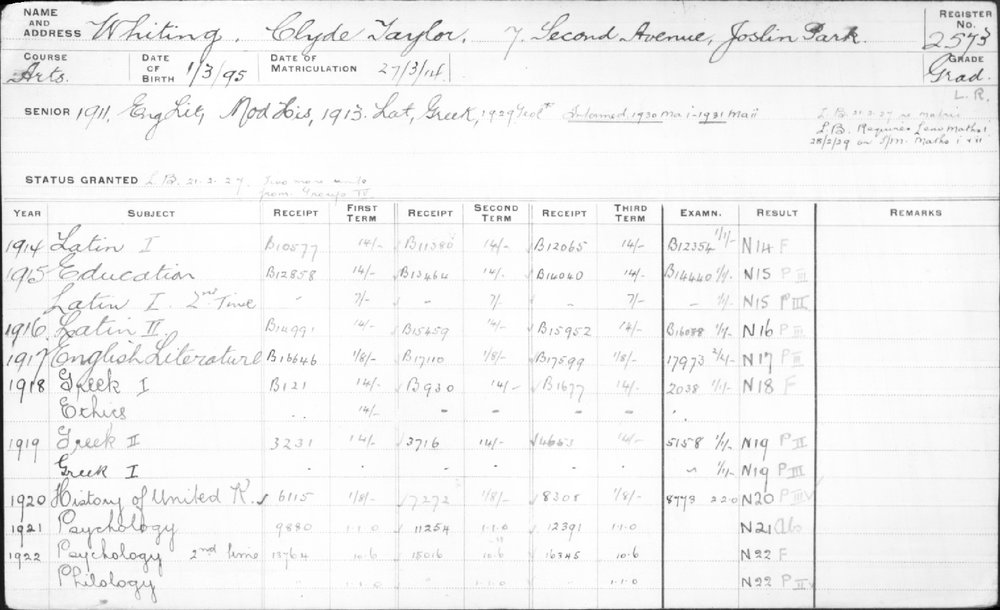 NAME AND ADDRESS Whiting, Clyde Taylor, 7 Second Avenue, Joslin Park. REGISTER No. 2573
COURSE Arts. DATE OF BIRTH 1/3/95 DATE OF MATRICULATION 27/3/14 GRADE Grad.
L.R.
SENIOR 1911, Eng Lit, Mod His, 1913. Lat, Greek, 1929 Informed 1930 Ma i - 1931 Ma ii L.B. 21.2.27 re matric
L.B. Requires Leav Maths 1
28/2/29 or S/M. Maths i & ii
STATUS GRANTED L.B. 21.2.27. Two more units
from Group IV
YEAR SUBJECT RECEIPT FIRST TERM RECEIPT SECOND TERM RECEIPT THIRD TERM EXAMN. RESULT REMARKS
1914 Latin I B10577 14/- B11380 14/- B12065 14/- B12354 1/1/- N14 F
1915 Education B12858 14/- B13464 14/- B14040 14/- B14440 1/1/- N15 P III
Latin I 2nd Time " 7/- " 7/- " 7/- " 1/1/- N15 P III
1916 Latin II B14991 14/- B15459 14/- B15952 14/- B16088 1/1/- N16 P III
1917 English Literature B16646 1/8/- B17110 1/8/- B17599 1/8/- 17973 2/2/- N17 P III
1918 Greek I B121 14/- B930 14/- B1677 14/- 2038 1/1/- N18 F
Ethics .. 14/- - - - - .
1919 Greek II 3231 14/- 3716 14/- 4663 14/- 5158 1/1/- N19 P II
Greek I . . . . . . " 1/1/- N19 P III
1920 History of United K. 6115 1/8/- 7272 1/8/- 8308 1/8/- 8773 2 2 0 N20 P III
1921 Psychology 9880 1.1.0 11254 1.1.0 12391 1.1.0 N21 Ab
1922 Psychology 2nd time 13764 10.6 15016 10.6 16345 10.6 N22 F
Philology " 1.1.0 " 1.1.0 1.1.0 N22 P II